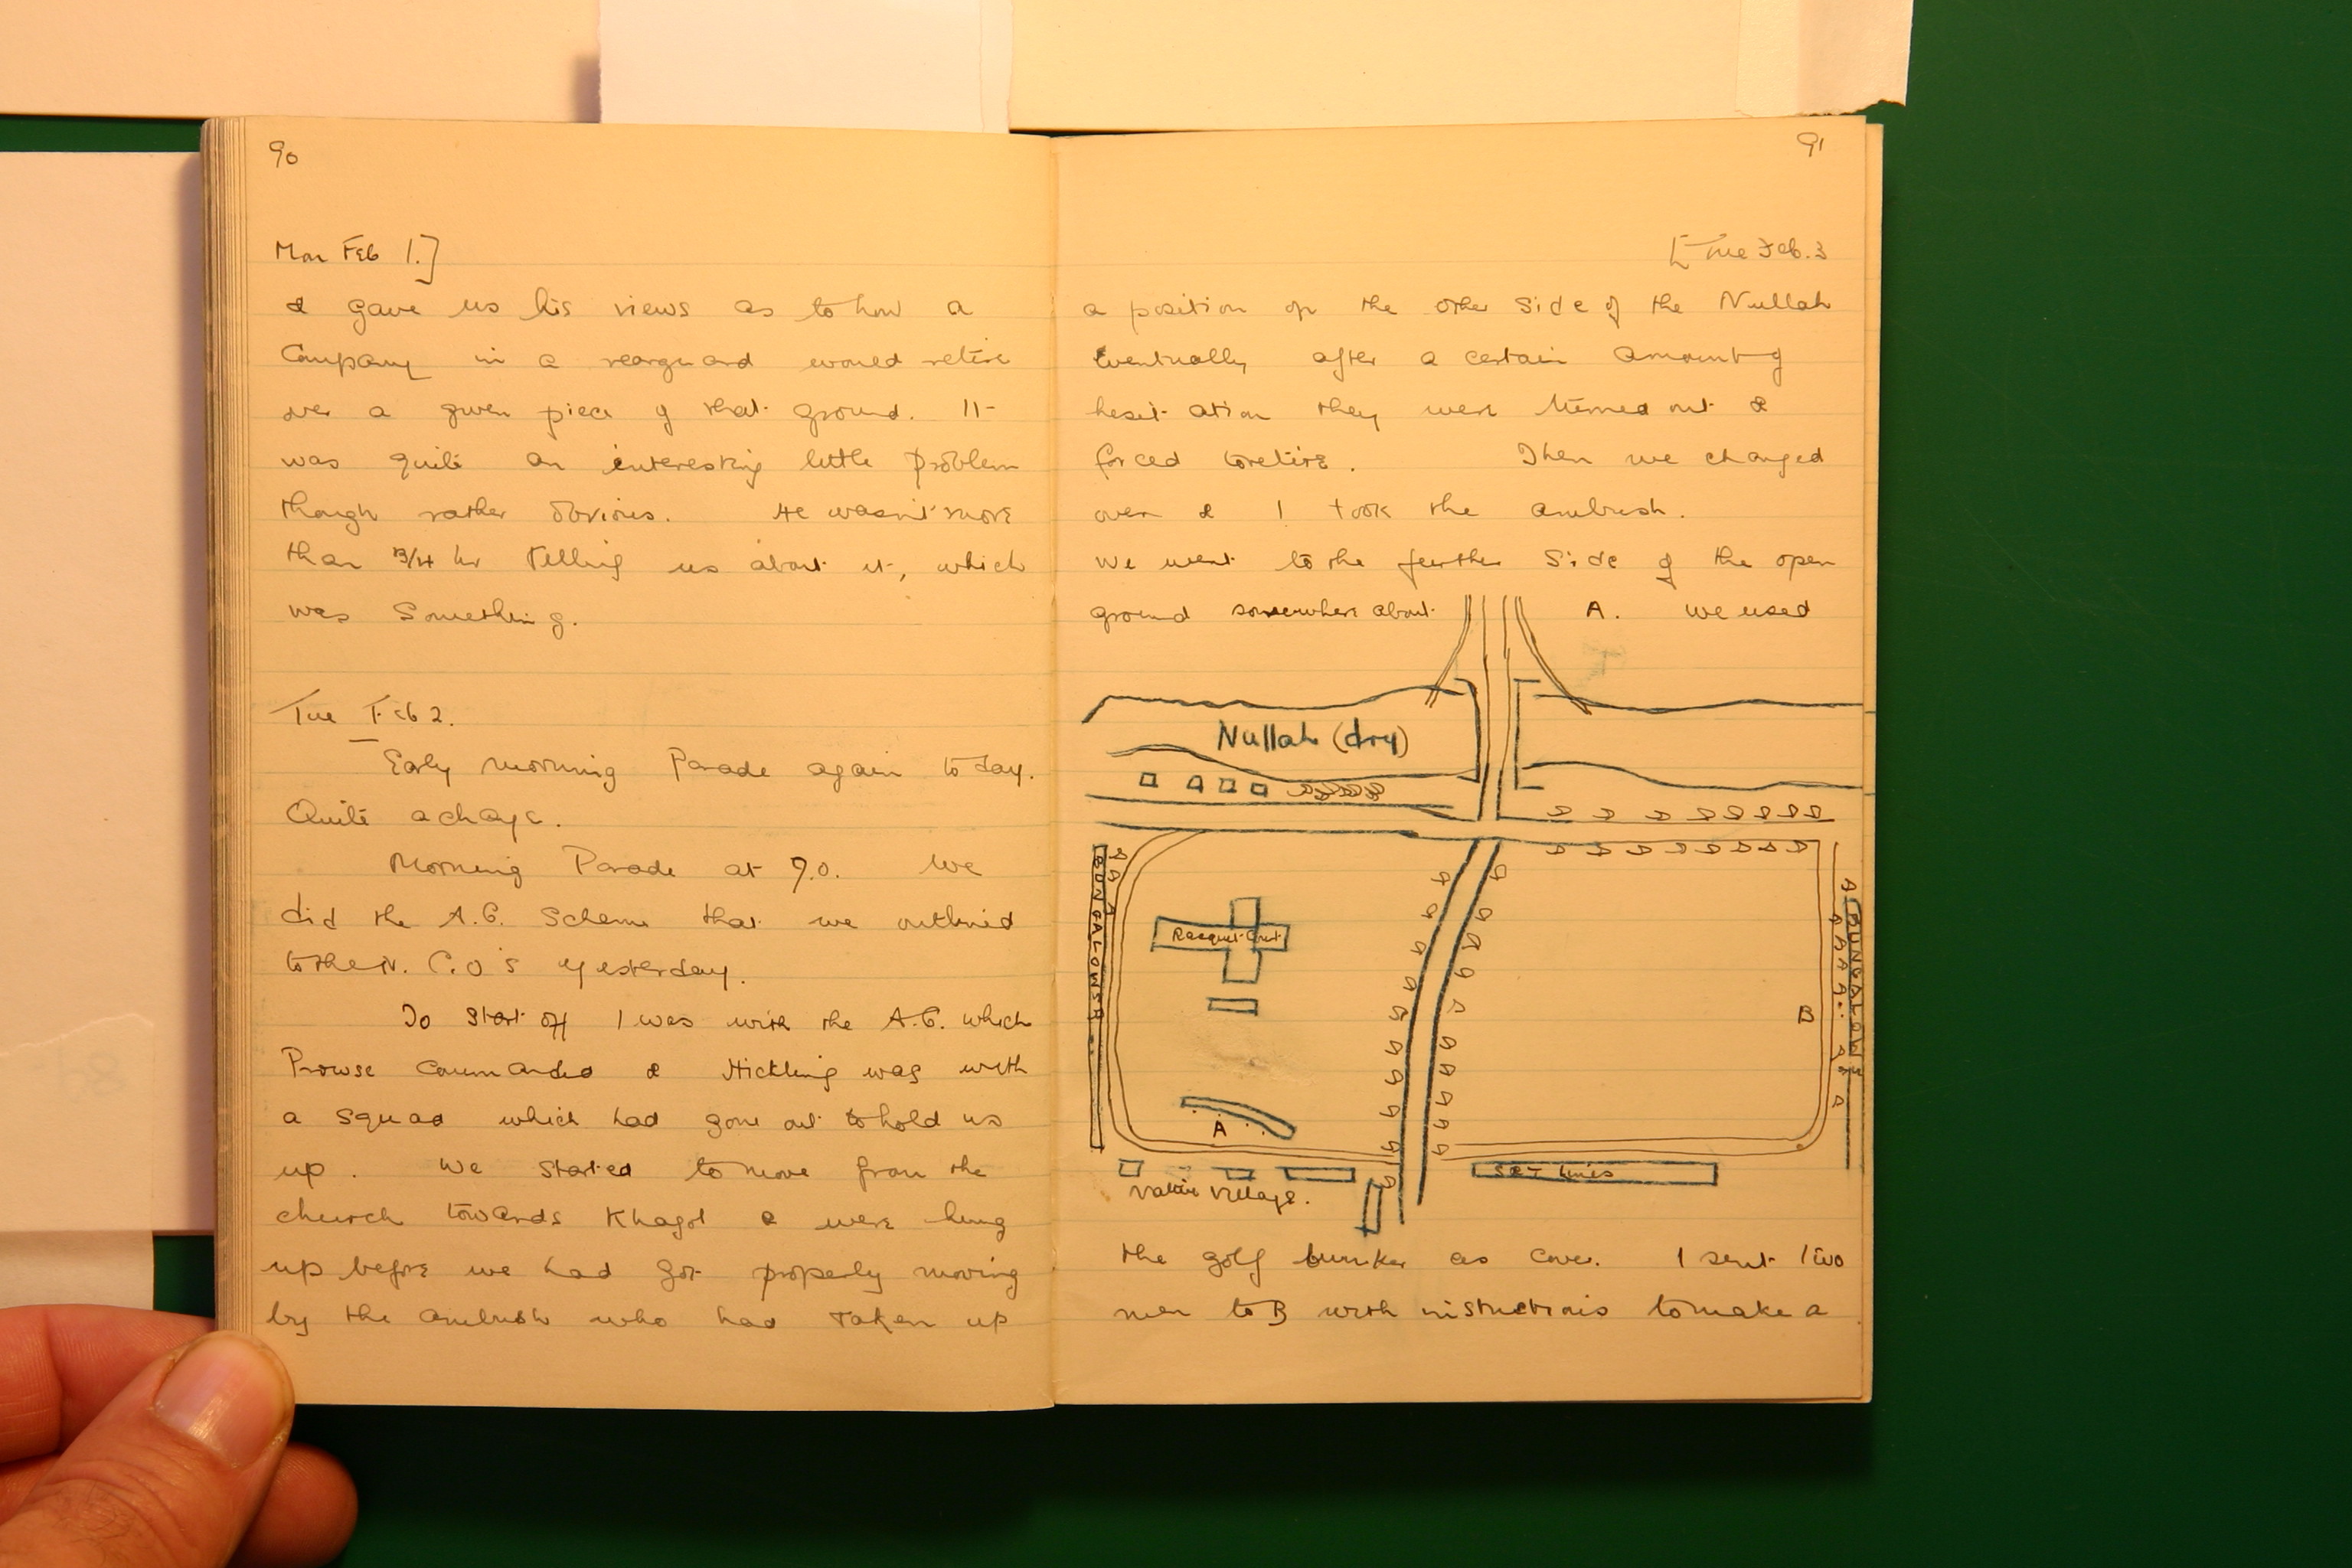 90
Mon Feb 1.]
& gave us his views as to how a
Company in a rearguard would retire
over a given piece of that ground. It
was quite an interesting little problem
though rather obvious. He wasn't more
than 3/4 hr telling us about it, which
was something.
Tue Feb 2.
Early morning Parade again today.
Quite a change.
Morning Parade at 9.0. We
did the A.G. Scheme that we outlined
to the N.C.O's yesterday.
To start off I was with the A.G. which
Prowse commanded & Hickling was with
a squad which had gone out to hold us
up. We started to move from the
church towards Khagol & were hung
up before we had got properly moving
by the ambush who had taken up
91
[Tue Feb. 3
a position on the other side of the Nullah
Eventually after a certain amount of
hesitation they were turned out &
forced to retire. Then we changed
over & I took the ambush.
We went to the further side of the open
ground somewhere about A. We used
Nullah (dry)
BUNGALOWS
Racquet Court
BUNGALOWS
B
A
S & T Lines
Native Village.
the golf bunker as cover. I sent two
men to B with instructions to make a